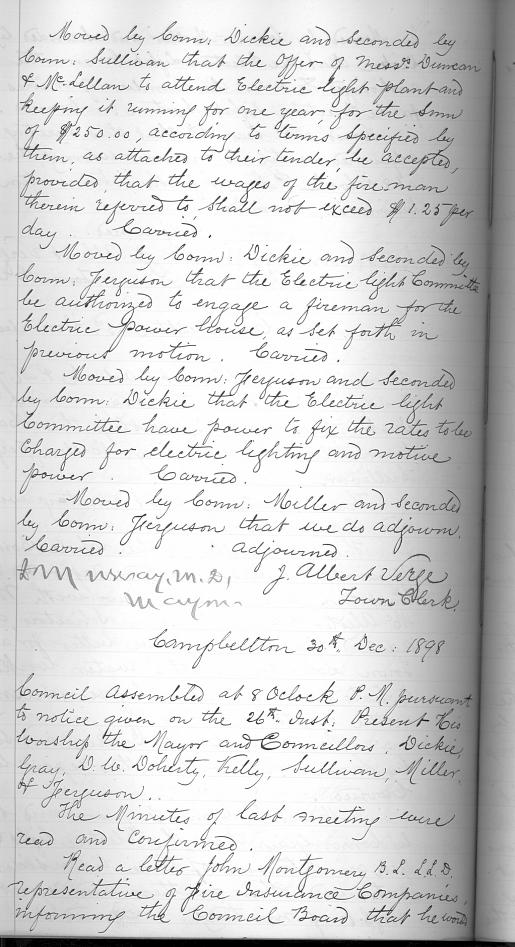 Moved by Conn: Dickie and Seconded by
Conn: Sullivan that the Offer of Messrs Duncan
& McLellan to attend Electric light plant and
keeping it running for one year, for the Sum
of $250.00, according to terms Specified by
them, as attached to their tender, be accepted,
provided, that the wages of the fireman
therein referred to, Shall not exceed $1.25 per
day. Carried.
Moved by Conn: Dickie and Seconded by
Conn: Ferguson that the Electric light Committee
be authorized to engage a fireman for the
Electric Power house, as Set forth in
previous motion. Carried.
Moved by Conn: Ferguson and Seconded
by Conn: Dickie that the Electric light
Committee have power to fix the rates to be
Charged for electric lighting and motive
power. Carried.
Moved by Conn: Miller and Seconded
by Conn: Ferguson that we do adjourn.
Carried. adjourned.
Murray, M.D, J. Albert Verge
Mayor Town Clerk.
Campbellton 30th Dec: 1898
Council Assembled at 8 Oclock P.M. pursuant
to notice given on the 26th Inst: Present His
Worship the Mayor and Councillors, Dickie,
Gray, D.W. Doherty, Kelly, Sullivan, Miller,
& Ferguson..
The Minutes of last meeting were
read and confirmed.
Read a letter John Montgomery B.L. LL.D.
representative of Fire Insurance Companies,
informing the Council Board that he would